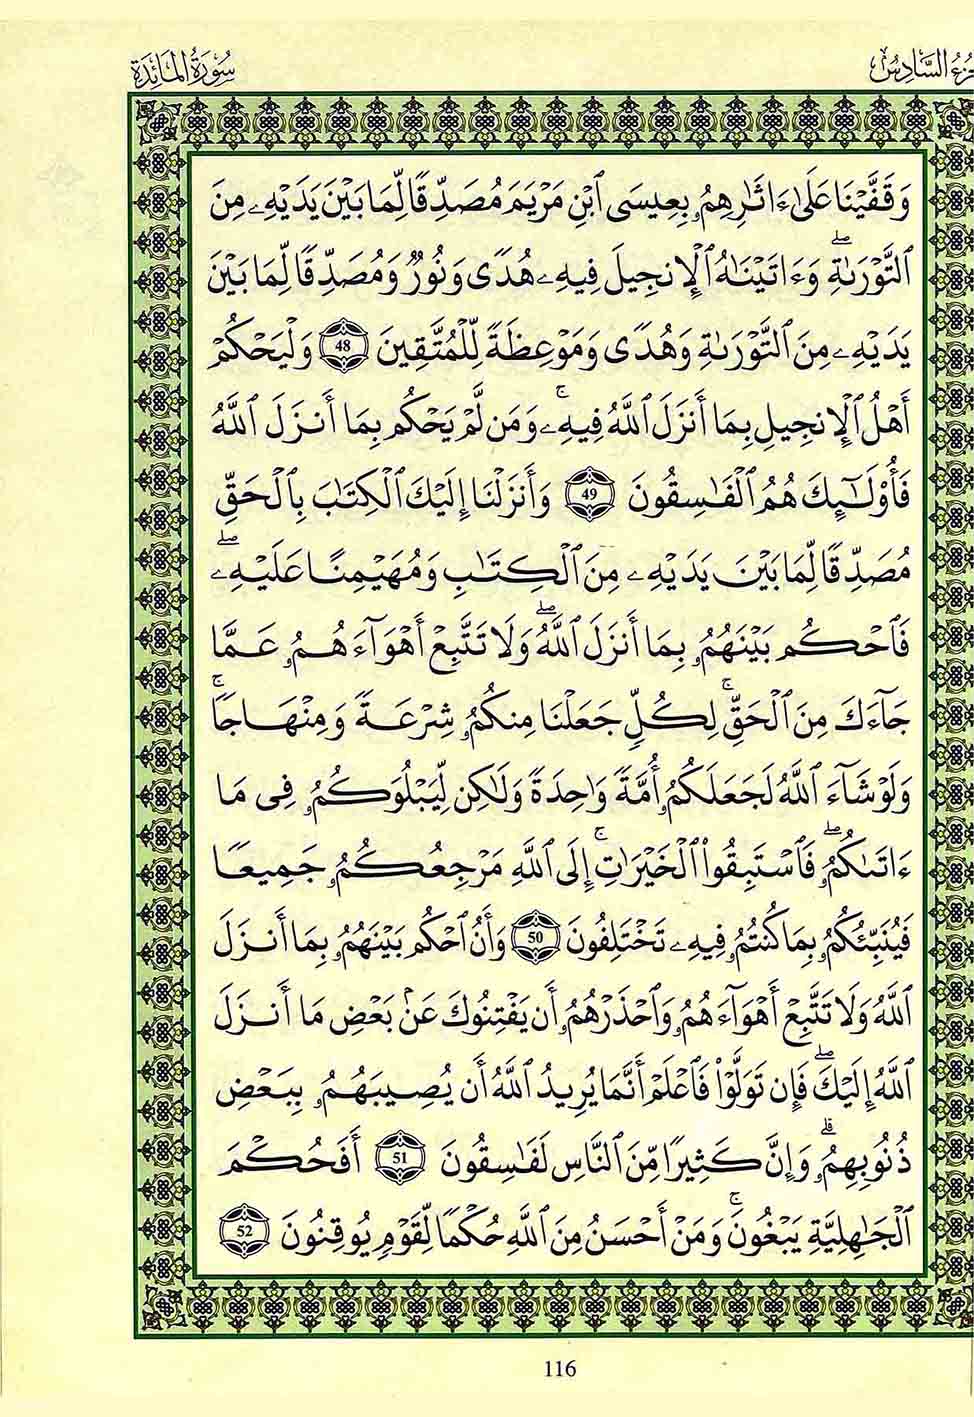 جزء السَّادِسُ
سُورَةُ المَائِدَةِ
وَقَفَّيْنَا عَلَىٰٓ ءَاثَٰرِهِمُۥ بِعِيسَى ٱبْنِ مَرْيَمَ مُصَدِّقًا لِّمَا بَيْنَ يَدَيْهِۦ مِنَ
ٱلتَّوْرَىٰةِۖ وَءَاتَيْنَٰهُ ٱلْإِنجِيلَ فِيهِۦ هُدًى وَنُورٌ وَمُصَدِّقًا لِّمَا بَيْنَ
يَدَيْهِۦ مِنَ ٱلتَّوْرَىٰةِ وَهُدًى وَمَوْعِظَةً لِّلْمُتَّقِينَ 48 وَلْيَحْكُمْ
أَهْلُ ٱلْإِنجِيلِ بِمَا أَنزَلَ ٱللَّهُ فِيهِۦۚ وَمَن لَّمْ يَحْكُم بِمَا أَنزَلَ ٱللَّهُ
فَأُوْلَٰٓئِكَ هُمُ ٱلْفَٰسِقُونَ 49 وَأَنزَلْنَا إِلَيْكَ ٱلْكِتَٰبَ بِٱلْحَقِّ
مُصَدِّقًا لِّمَا بَيْنَ يَدَيْهِۦ مِنَ ٱلْكِتَٰبِ وَمُهَيْمِنًا عَلَيْهِۦۖ
فَٱحْكُم بَيْنَهُمُۥ بِمَا أَنزَلَ ٱللَّهُۖ وَلَا تَتَّبِعْ أَهْوَآءَهُمُۥ عَمَّا
جَآءَكَ مِنَ ٱلْحَقِّۚ لِكُلٍّ جَعَلْنَا مِنكُمُۥ شِرْعَةً وَمِنْهَاجًاۚ
وَلَوْ شَآءَ ٱللَّهُ لَجَعَلَكُمُۥ أُمَّةً وَٰحِدَةً وَلَٰكِن لِّيَبْلُوَكُمُۥ فِى مَا
ءَاتَىٰكُمُۥۖ فَٱسْتَبِقُواْ ٱلْخَيْرَٰتِۚ إِلَى ٱللَّهِ مَرْجِعُكُمُۥ جَمِيعًا
فَيُنَبِّئُكُمُۥ بِمَا كُنتُمُۥ فِيهِۦ تَخْتَلِفُونَ 50 وَأَنُ ٱحْكُم بَيْنَهُمُۥ بِمَا أَنزَلَ
ٱللَّهُ وَلَا تَتَّبِعْ أَهْوَآءَهُمُۥ وَٱحْذَرْهُمُۥ أَن يَفْتِنُوكَ عَنۢ بَعْضِ مَا أَنزَلَ
ٱللَّهُ إِلَيْكَۖ فَإِن تَوَلَّوْاْ فَٱعْلَمْ أَنَّمَا يُرِيدُ ٱللَّهُ أَن يُصِيبَهُمُۥ بِبَعْضِ
ذُنُوبِهِمُۥۗ وَإِنَّ كَثِيرًا مِّنَ ٱلنَّاسِ لَفَٰسِقُونَ 51 أَفَحُكْمَ
ٱلْجَٰهِلِيَّةِ يَبْغُونَۚ وَمَنْ أَحْسَنُ مِنَ ٱللَّهِ حُكْمًا لِّقَوْمٍ يُوقِنُونَ 52
116